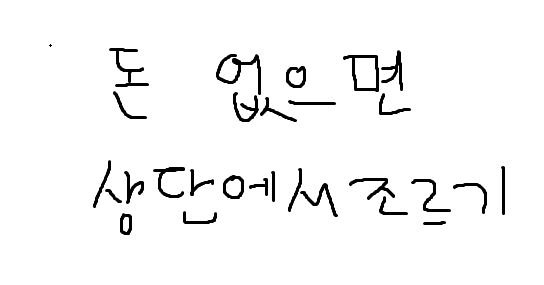 돈 없으면
상단에서 조르기